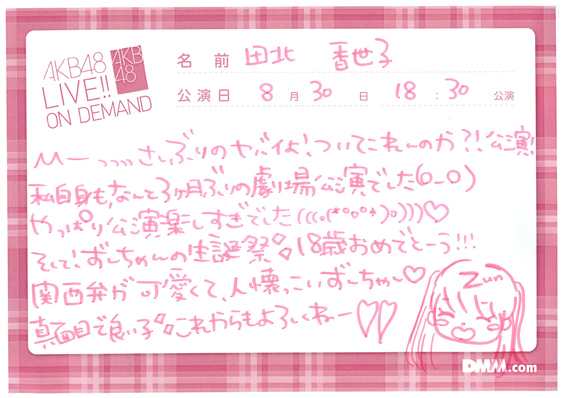 AKB48
LIVE!!
ON DEMAND
AKB
48
名前 田北 香世子
公演日 8月30日 18:30 公演
んーっっっさしぶりのヤバイよ!ついてこれんのか?!公演!
私自身も、なんと3ヶ月ぶりの劇場公演でした(o_o)
やっぱり公演楽しすぎでした(((o(*°o°*)o)))♡
そして!ずんちゃんの生誕祭◇18歳おめでとーう!!!
関西弁が可愛くて、人懐っこいずんちゃん♡
真面目で良い子◇これからもよろしくねー♡♡
Zun
DMM.com